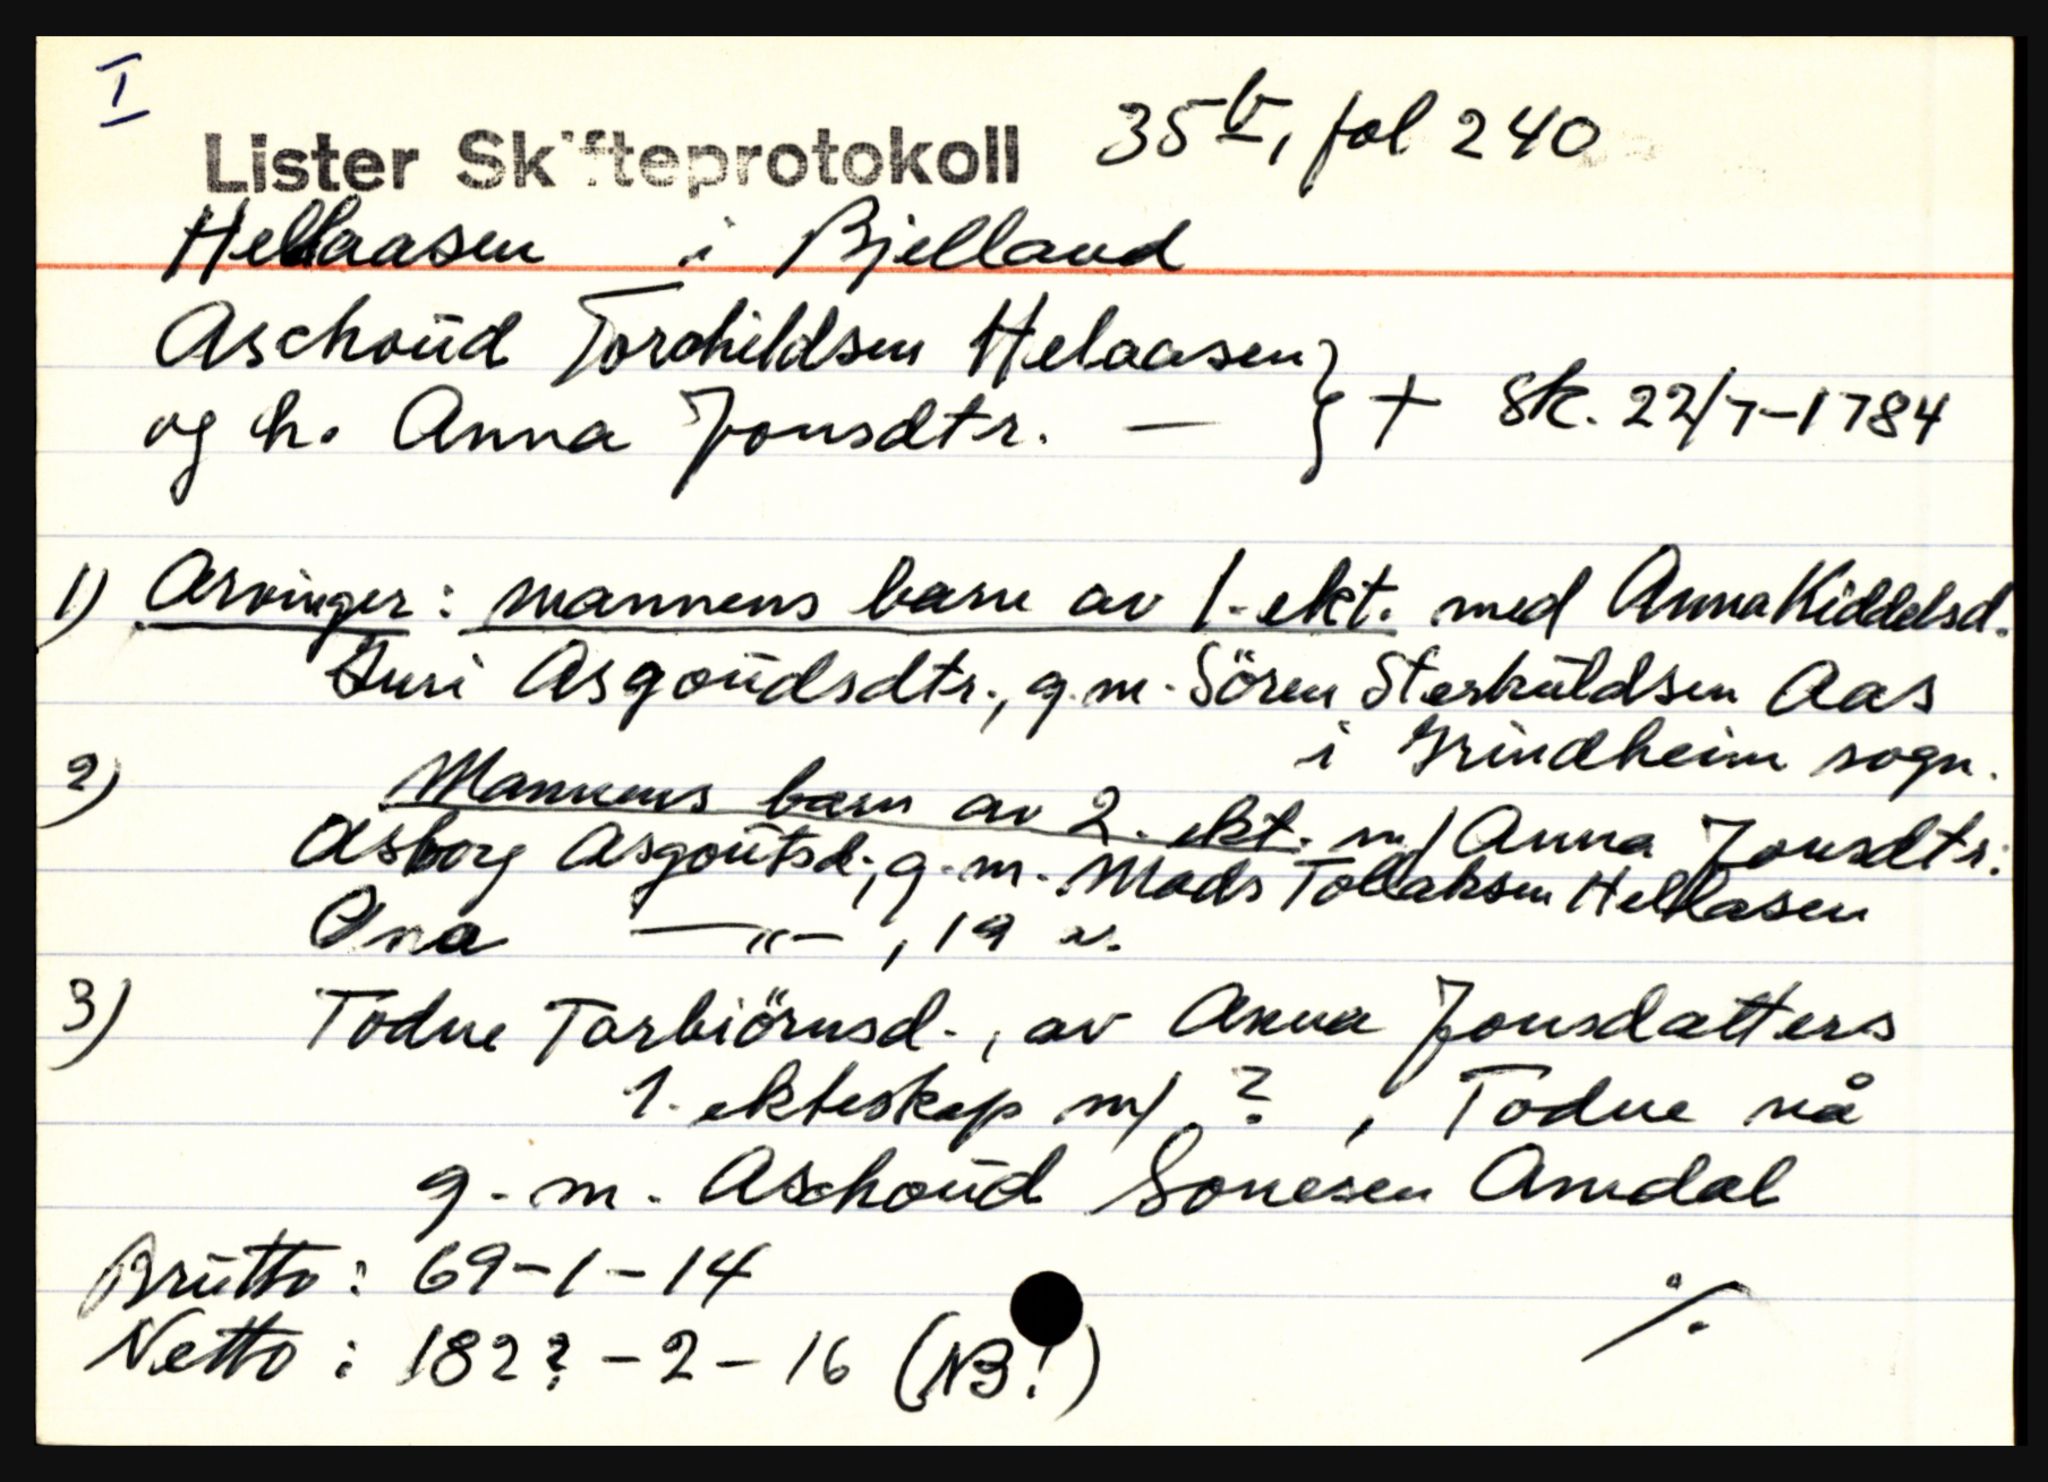 I
Lister Skifteprotokoll 35b, fol 240
Hellaasen i Bjelland
Aschoud Torchildsen Helaasen } + Sk. 22/7-1784
og h. Anna Jonsdtr. —
1) Arvinger: mannens barn av 1. ekt. med Anna Kiddelsd.
Siri Asgoudsdtr., g.m. Sören Sterkuldsen Aas
i Grindheim sogn.
2) Mannens barn av 2. ekt. m/ Anna Jonsdtr.:
Asborg Asgoutsd., g.m. Mads Tollaksen Hellasen
Ana —"—, 19 år.
3) Todne Torbiörnsd., av Anna Jonsdatters
1. ekteskap m/ ?, Todne nå
g.m. Aschoud Sonesen Amdal
Brutto: 69-1-14
Netto: 182?-2-16 (NB!)
%